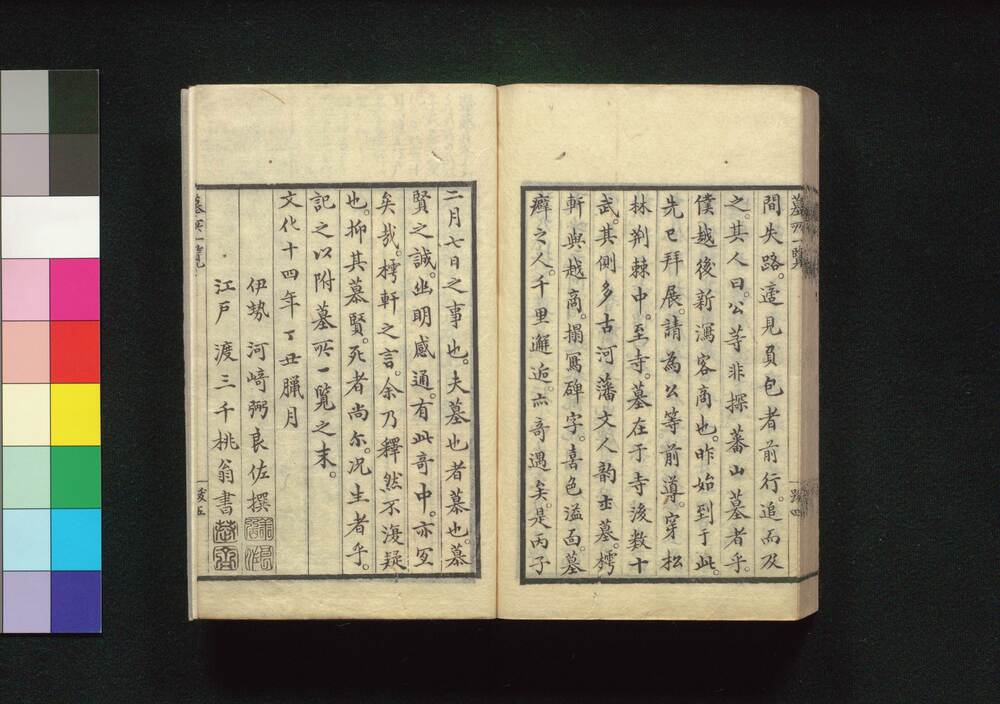 墓所一覧
間失路。適見負包者前行。追而及
之。其人曰。公等非探蕃山墓者乎。
僕越後新潟客商也。昨始到于此。
先已拜展。請為公等前導。穿松
林荊棘中。至寺。墓在于寺後数十
武。其側多古河藩文人韵士墓。樗
軒與越商。搨寫碑字。喜色溢面。墓
癖之人。千里邂逅。亦奇遇矣。是丙子
跋四
二月七日之事也。夫墓也者慕也。慕
賢之誠。幽明感通。有此奇中。亦宜
矣哉。樗軒之言。余乃釋然不復疑
也。抑其慕賢。死者尚尔。况生者乎。
記之以附墓所一覧之末。
文化十四年丁丑臘月
伊勢 河﨑弼良佐撰
江戸 渡三千桃翁書
墓所一覧
跋五